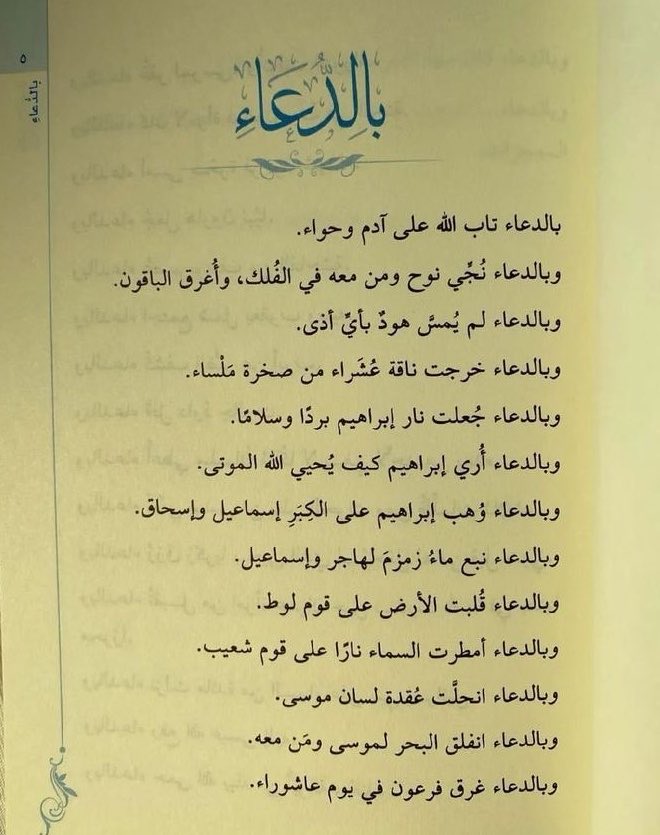 ٥
بالدُّعاءِ
بِالدُّعَاءِ
بالدعاء تاب الله على آدم وحواء.
وبالدعاء نُجِّي نوح ومن معه في الفُلك، وأُغرق الباقون.
وبالدعاء لم يُمسَّ هودٌ بأيِّ أذى.
وبالدعاء خرجت ناقة عُشَراء من صخرة مَلْساء.
وبالدعاء جُعلت نار إبراهيم بردًا وسلامًا.
وبالدعاء أُري إبراهيم كيف يُحيي الله الموتى.
وبالدعاء وُهب إبراهيم على الكِبَرِ إسماعيل وإسحاق.
وبالدعاء نبع ماءُ زمزمَ لهاجر وإسماعيل.
وبالدعاء قُلبت الأرض على قوم لوط.
وبالدعاء أمطرت السماء نارًا على قوم شعيب.
وبالدعاء انحلَّت عُقدة لسان موسى.
وبالدعاء انفلق البحر لموسى ومَن معه.
وبالدعاء غرق فرعون في يوم عاشوراء.